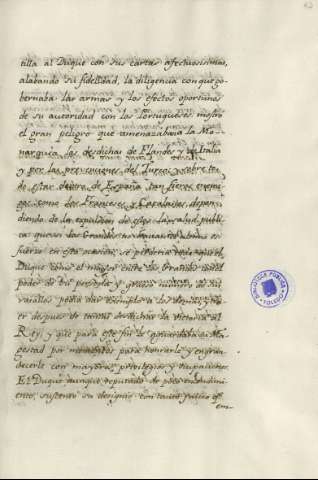 tilla al Duque con sus cartas afectuosissimas,
alabando su fidelidad, la diligencia con que go-
bernaba las armas y los efectos oportunos
de su autoridad con los Portugueses: mostró
el gran peligro que amenazaba a la Mo-
narquia, las desdichas de Flandes y de Italia
y por las prevenciones del Turco; y sobre todo
de estar dentro de España tan fieros enemi-
gos como dos Franceses y Catalanes, depen-
diendo de la expulsion de ellos la salud publi-
ca:
en esta ocasion, se perderia todo: que el
Duque como el mayor entre los Grandes en el
poder de su persona y grueso numero de sus
vasallos podia dar exemplo a los demas, y
ser despues de tantas desdichas la victoria del
Rey: y que para este fin le aguardaba su Ma-
gestad por momentos para honrarle y engran-
decerle con mayores privilegios y
El Duque aunque reputado de poco entendimi-
ento, sustentó su designio con tanto
em-
BIBLIOTECA PUBLICA
TOLEDO